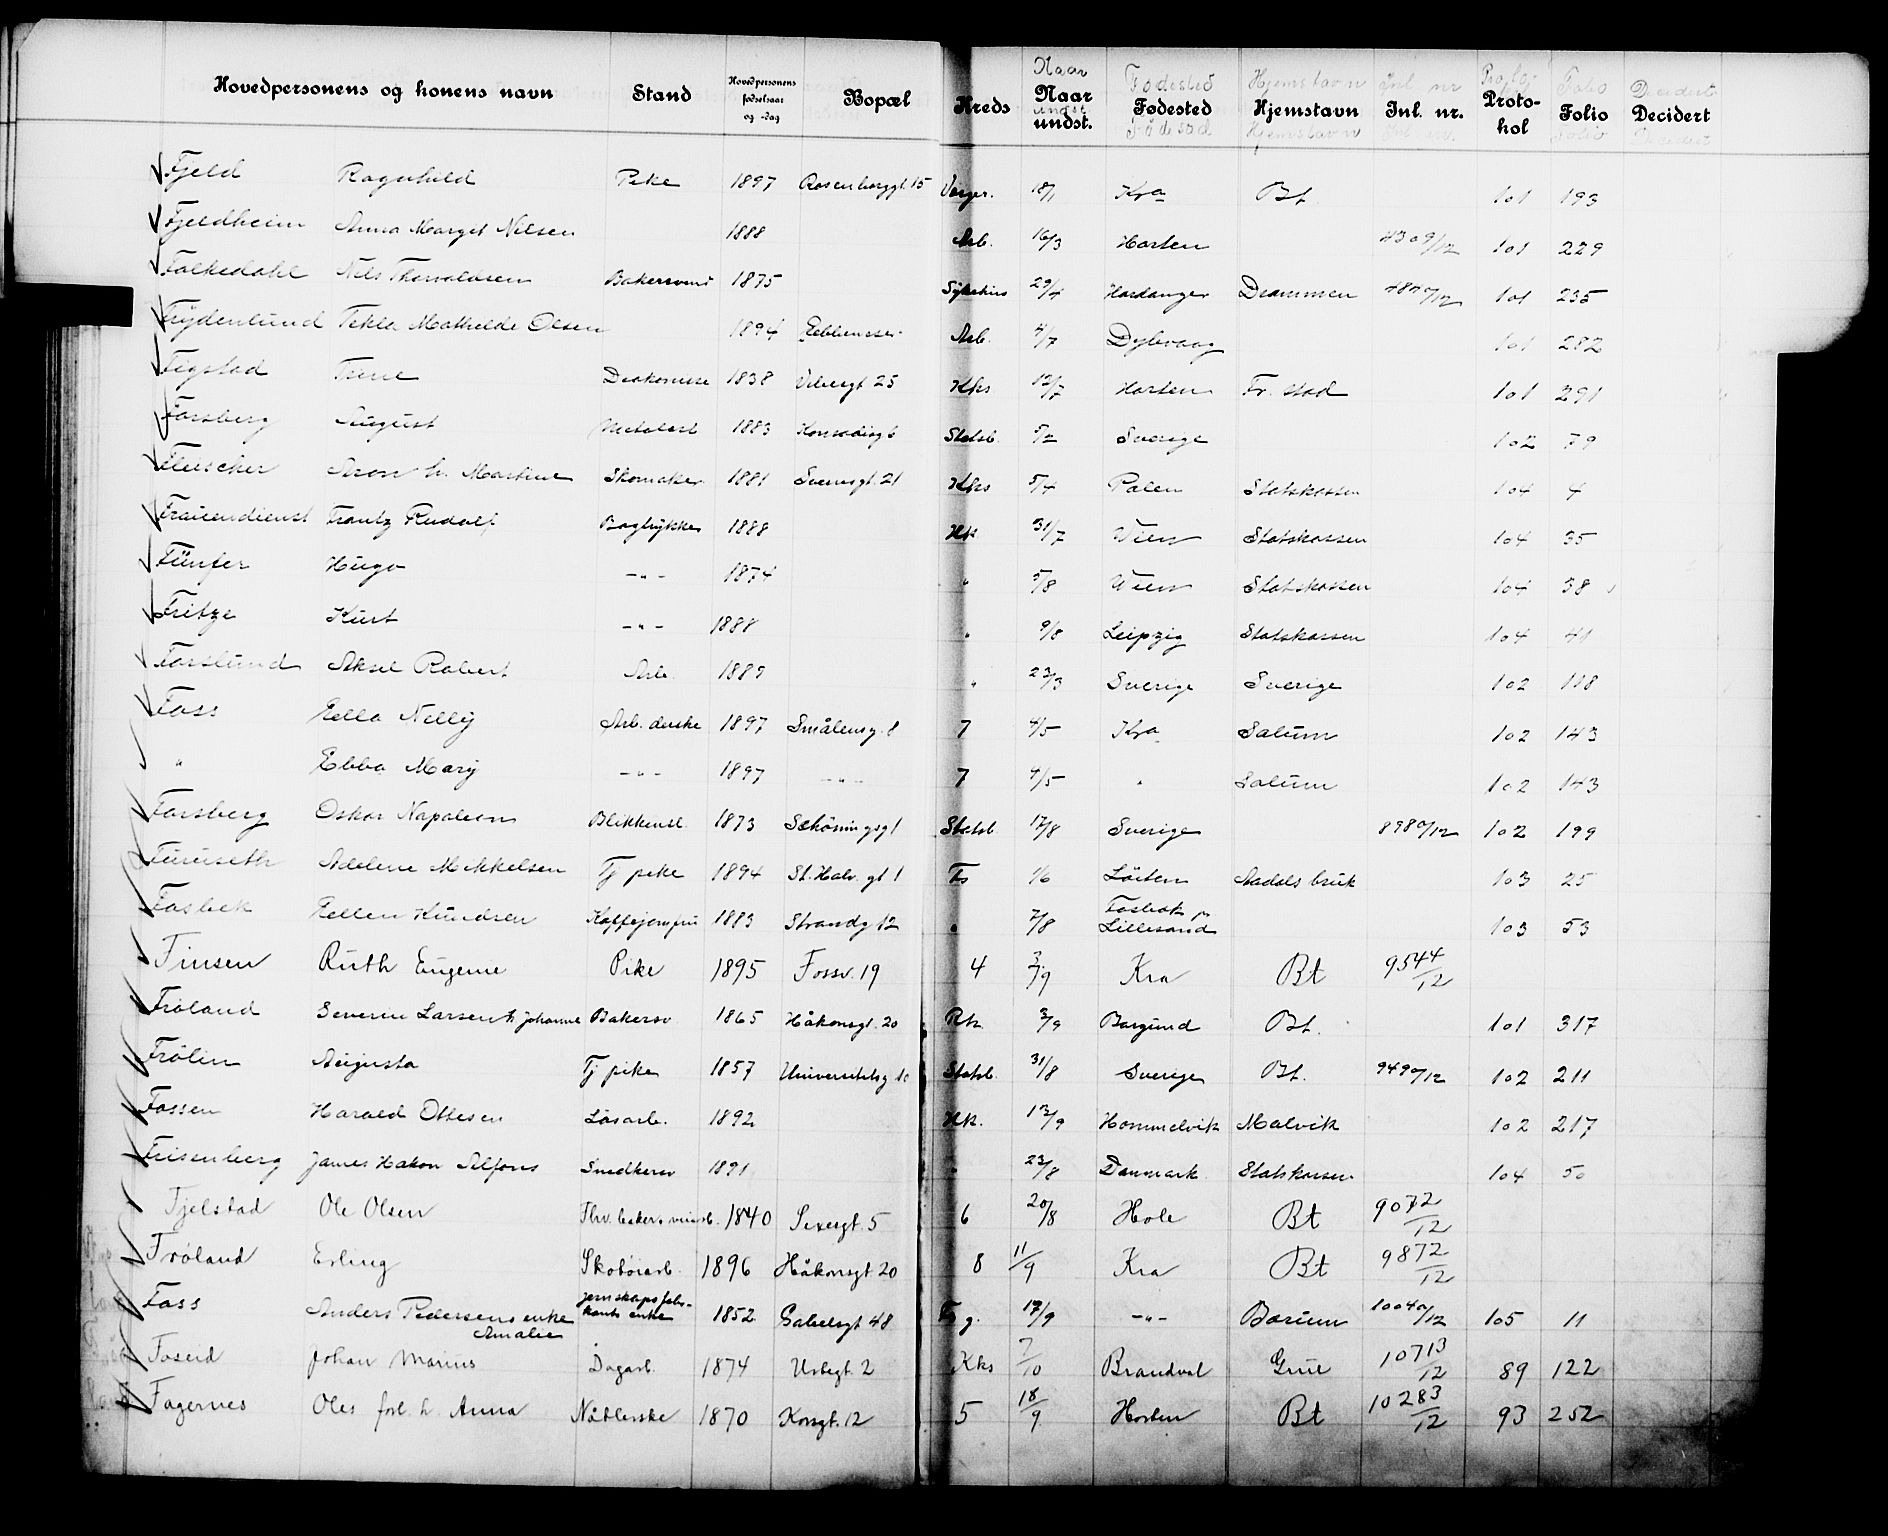 Hovedpersonens og konens navn Stand Hovedpersonens fødselsaar og -dag Bopæl Kreds Naar undst. Fødested Hjemstavn Jnl. nr. Proto-kol Folio Decidert
Fjeld Ragnhild Pike 1897 Rosenborggt. 15 Vaager. 18/1 Kra Bt. 101 193
Fjeldheim Anna Marget Nilsen 1888 Arb. 16/3 Horten 4309/12 101 229
Falkedahl Nils Thorvaldsen Bakersvend 1875 Sykehus 29/4 Hardanger Drammen 101 235
Frydenlund Tekla Mathilde Olsen 1894 Arb. 4/7 Dybvaag 101 282
Figstad Trine Diakonisse 1838 Vibesgt 25 Kks 12/7 Horten Fr. stad 101 291
Forsberg August Metalarb 1883 Statsb. 5/2 Sverige 102 79
Fleischer Aron h. Martine Skomaker 1881 Svensgt. 21 Kks 5/4 Polen Statskassen 104 4
Frauendienst Frantz Rudolf Bogtrykker 1888 Hk 31/7 Wien Statskassen 104 35
Fünfer Hugo -"- 1874 " 5/8 Wien Statskassen 104 38
Fritze Kurt -"- 1888 " 9/8 Leipzig Statskassen 104 41
Forslund Aksel Robert Arb. 1889 " 23/3 Sverige Sverige 102 118
Foss Ella Nelly Arb. derske 1897 Smålensg. 8 7 4/5 Kra Solum 102 143
" Ebba Mary -"- 1897 -"- 7 4/5 " Solum 102 143
Forsberg Oskar Napoleon Blikkensl. 1873 Schöningsgt Statsb. 17/8 Sverige 8980/12 102 199
Furuseth Adeline Mikkelsen Tj pike 1894 St. Halv. gt 1 Fs 1/6 Löiten Aadals bruk 103 25
Fosbek Ellen Knudsen Kaffejomfru 1883 Strandg 12 " 7/8 Fosbæk pr Lillesand 103 53
Finsen Ruth Eugenie Pike 1895 Fossv. 19 4 3/9 Kra Bt 9544/12
Frøland Severin Larsen h Johanne Bakersv 1865 Håkonsgt. 20 Rk. 3/9 Borgund Bt. 101 317
Frölin Augusta Tj pike 1857 Universitetsg 10 Statsb. 31/8 Sverige Bt. 9490/12 102 211
Fossen Harald Ottesen Løsarb. 1892 Hk. 13/9 Hommelvik Malvik 102 217
Frisenberg James Hakon Alfons Snedkersv 1891 " 23/8 Danmark Statskassen 104 50
Fjelstad Ole Olsen 1840 Sexesgt. 5 6 20/8 Hole Bt 9072/12
Frøland Erling Skotøiarb. 1896 Håkonsgt 20 8 11/9 Kra Bt 9872/12
Foss Anders Pedersens enke Amalie Jernskapsfabrikants enke 1852 Gabelsgt 48 Fg. 17/9 -"- Bærum 10040/12 105 11
Foseid Johan Marius Dagarb. 1874 Urbygt. 2 Kks 7/10 Brandval Grue 10713/12 89 122
Fagernes Oles forl. h. Anna Nåtlerske 1870 Korsgt. 12 5 18/9 Horten Bt 10283/12 93 252